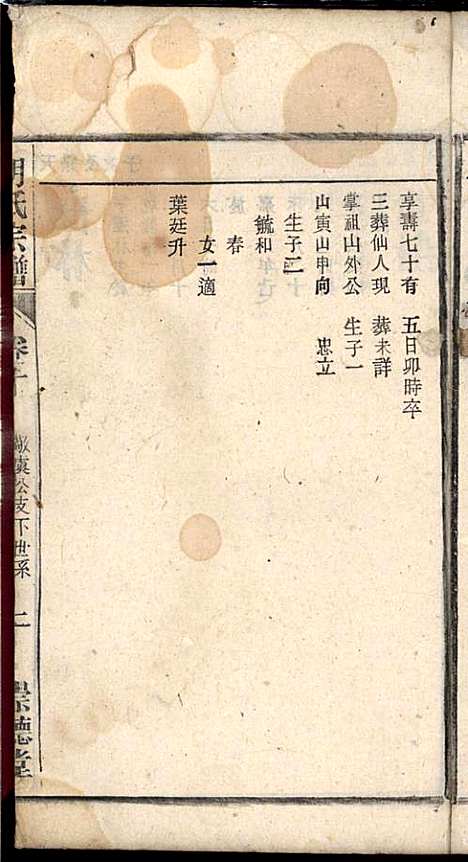 享壽七十有　五日卯時卒
三葬仙人現　葬未詳
掌祖山外公　生子一
山寅山申向　忠立
生子二
毓和
春
女一適
葉廷升
氏宗譜
卷
公支下世系
二
崇德堂